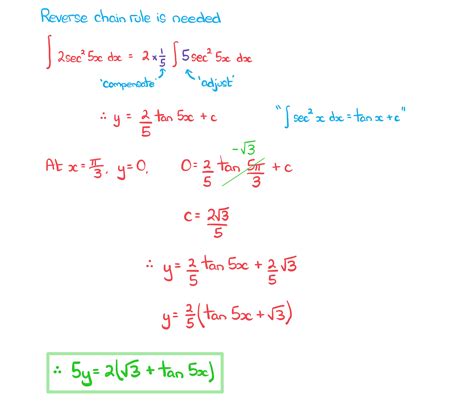 Reverse chain rule is needed
∫ 2sec² 5x dx = 2 × 1/5 ∫ 5 sec² 5x dx
'compensate' 'adjust'
∴ y = 2/5 tan 5x + c "∫ sec² x dx = tan x + c"
-√3
At x = π/3, y = 0, 0 = 2/5 tan 5π/3 + c
c = 2√3/5
∴ y = 2/5 tan 5x + 2/5 √3
y = 2/5 (tan 5x + √3)
∴ 5y = 2(√3 + tan 5x)